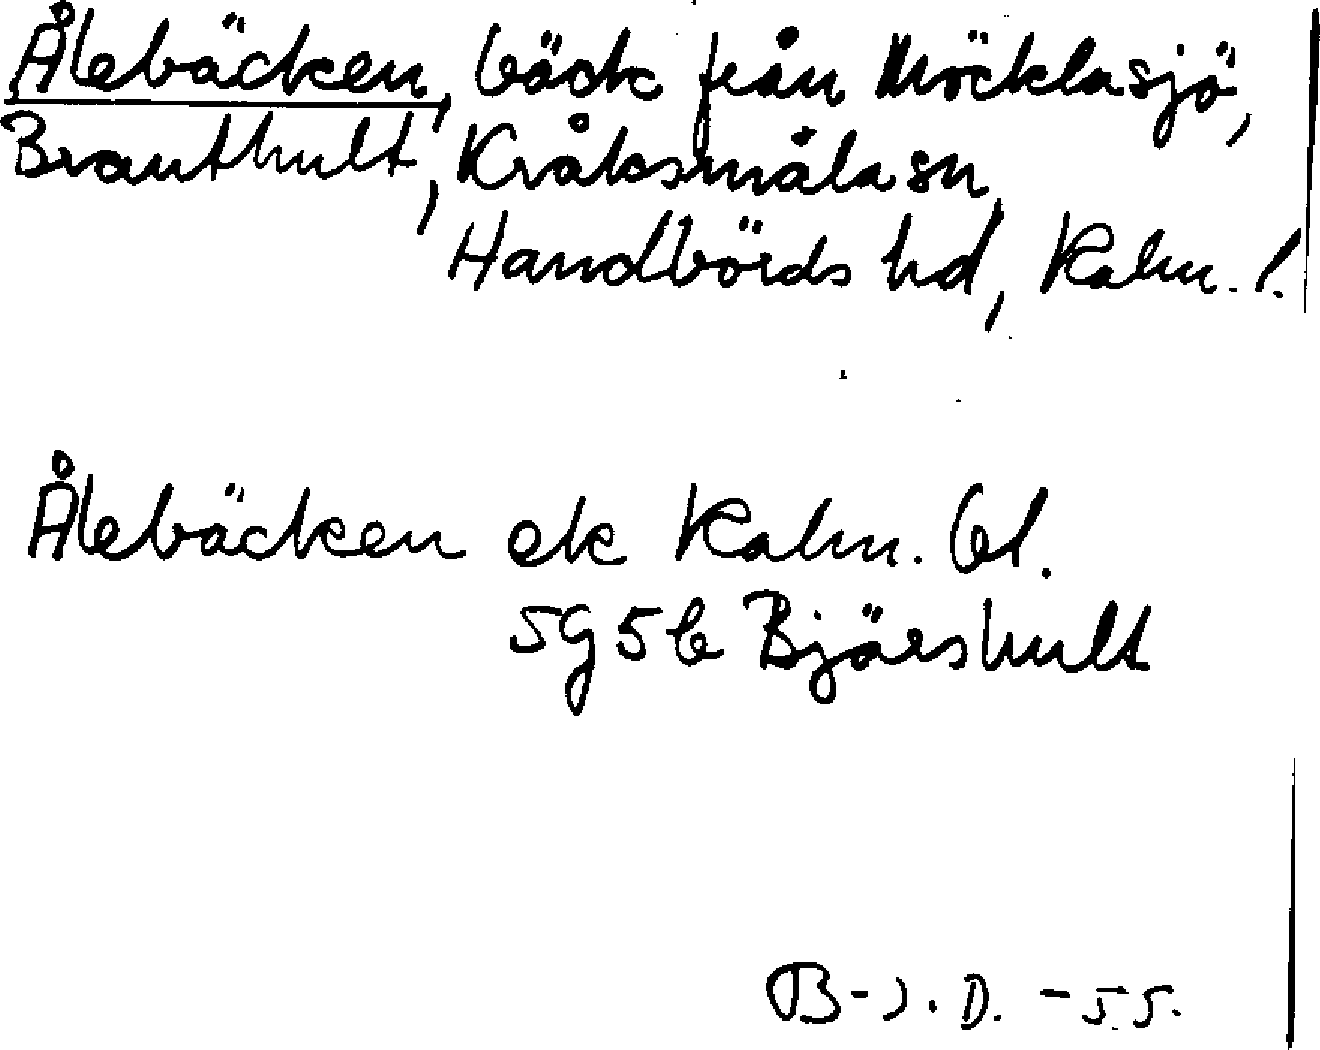 Ålebäcken, bäck från Möcklasjö,
Branthult, Kråksmåla sn,
Handbörds hd, Kalm. l.
Ålebäcken ek Kalm. bl.
5g5b Bjärshult
B-J. D. -55.